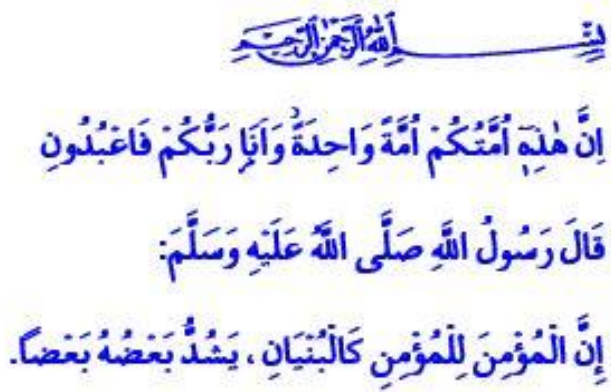 بِسْمِ اللّٰهِ الرَّحْمٰنِ الرَّحِيمِ
اِنَّ هٰذِه۪ٓ اُمَّتُكُمْ اُمَّةً وَاحِدَةًۘ وَاَنَا۬ رَبُّكُمْ فَاعْبُدُونِ
قَالَ رَسُولُ اللَّهِ صَلَّى اللَّهُ عَلَيْهِ وَسَلَّمَ:
إِنَّ الْمُؤْمِنَ لِلْمُؤْمِنِ كَالْبُنْيَانِ، يَشُدُّ بَعْضُهُ بَعْضاً.